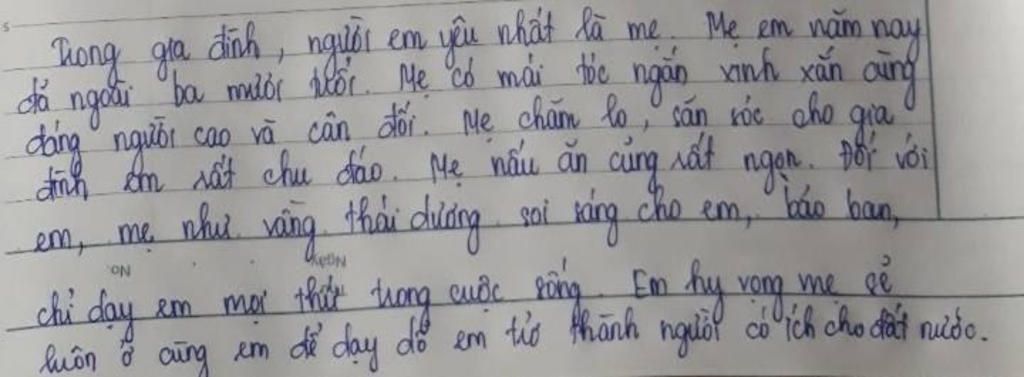 Trong gia đình, người em yêu nhất là mẹ. Mẹ em năm nay
đã ngoài ba mươi tuổi. Mẹ có mái tóc ngắn xinh xắn cùng
dáng người cao và cân đối. Mẹ chăm lo, săn sóc cho gia
đình em rất chu đáo. Mẹ nấu ăn cũng rất ngon. Đối với
em, mẹ như vầng thái dương soi sáng cho em, bảo ban,
No. Ngày
chỉ dạy em mọi thứ trong cuộc sống. Em hy vọng mẹ sẽ
luôn ở cùng em để dạy dỗ em trở thành người có ích cho đất nước.